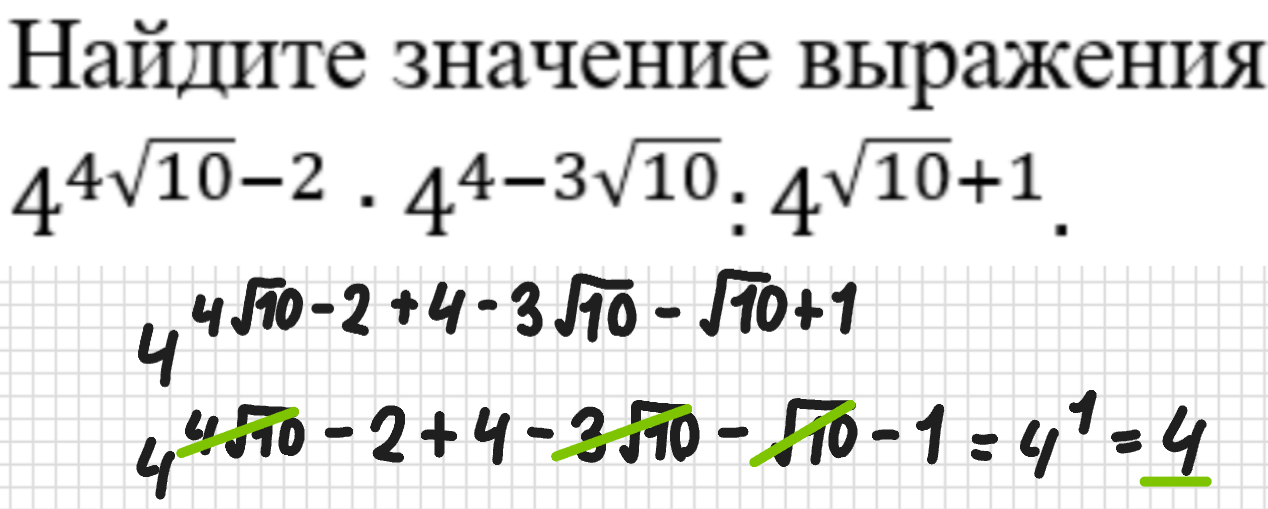 Найдите значение выражения
4^{4√10−2} · 4^{4−3√10} : 4^{√10+1}.
4^{4√10-2+4-3√10-√10+1}
4^{4√10-2+4-3√10-√10-1} = 4^1 = 4